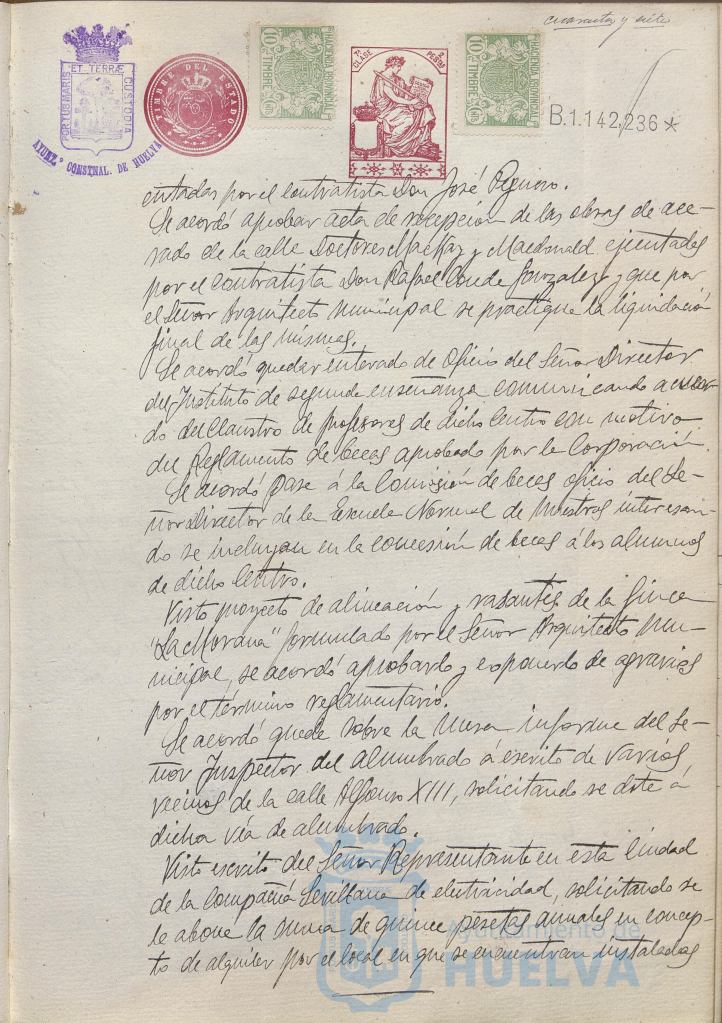 cuarenta y siete
PORTUS MARIS ET TERRÆ CUSTODIA
AYUNT.º CONSTNAL. DE HUELVA
TIMBRE DEL ESTADO
HACIENDA PROVINCIAL
10 Cs TIMBRE 10 Cs
7ª CLASE
2 PESETAS
HACIENDA PROVINCIAL
10 Cs TIMBRE 10 Cs
B.1.142,236*
cutadas por el contratista Don José
Se acordó aprobar acta de recepción de las obras de ace-
rado de la calle Doctores Mackay y Macdonald ejecutadas
por el contratista Don Rafael Conde Gonzalez y que por
el Señor Arquitecto Municipal se practique la liquidación
final de las mismas.
Se acordó quedar enterado de Oficio del Señor Director
del Instituto de segunda enseñanza comunicando acuer-
do del Claustro de profesores de dicho Centro con motivo
del Reglamento de becas aprobado por la Corporación.
Se acordó pase á la Comisión de becas oficio del Se-
ñor Director de la Escuela Normal de Maestros interesan-
do se incluyan en la concesión de becas á los alumnos
de dicho Centro.
Visto proyecto de alineación y rasantes de la finca
"La Morana" formulado por el Señor Arquitecto Mu-
nicipal, se acordó aprobarlo y exponerlo de agravios
por el término reglamentario.
Se acordó quede sobre la mesa informe del Se-
ñor Inspector del alumbrado á escrito de varios
vecinos de la calle Alfonso XIII, solicitando se dote á
dicha vía de alumbrado.
Visto escrito del Señor Representante en esta Ciudad
de la Compañía Sevillana de electricidad, solicitando se
le abone la suma de quince pesetas anuales en concep-
to de alquiler por el local en que se encuentran instaladas
Ayuntamiento de
HUELVA